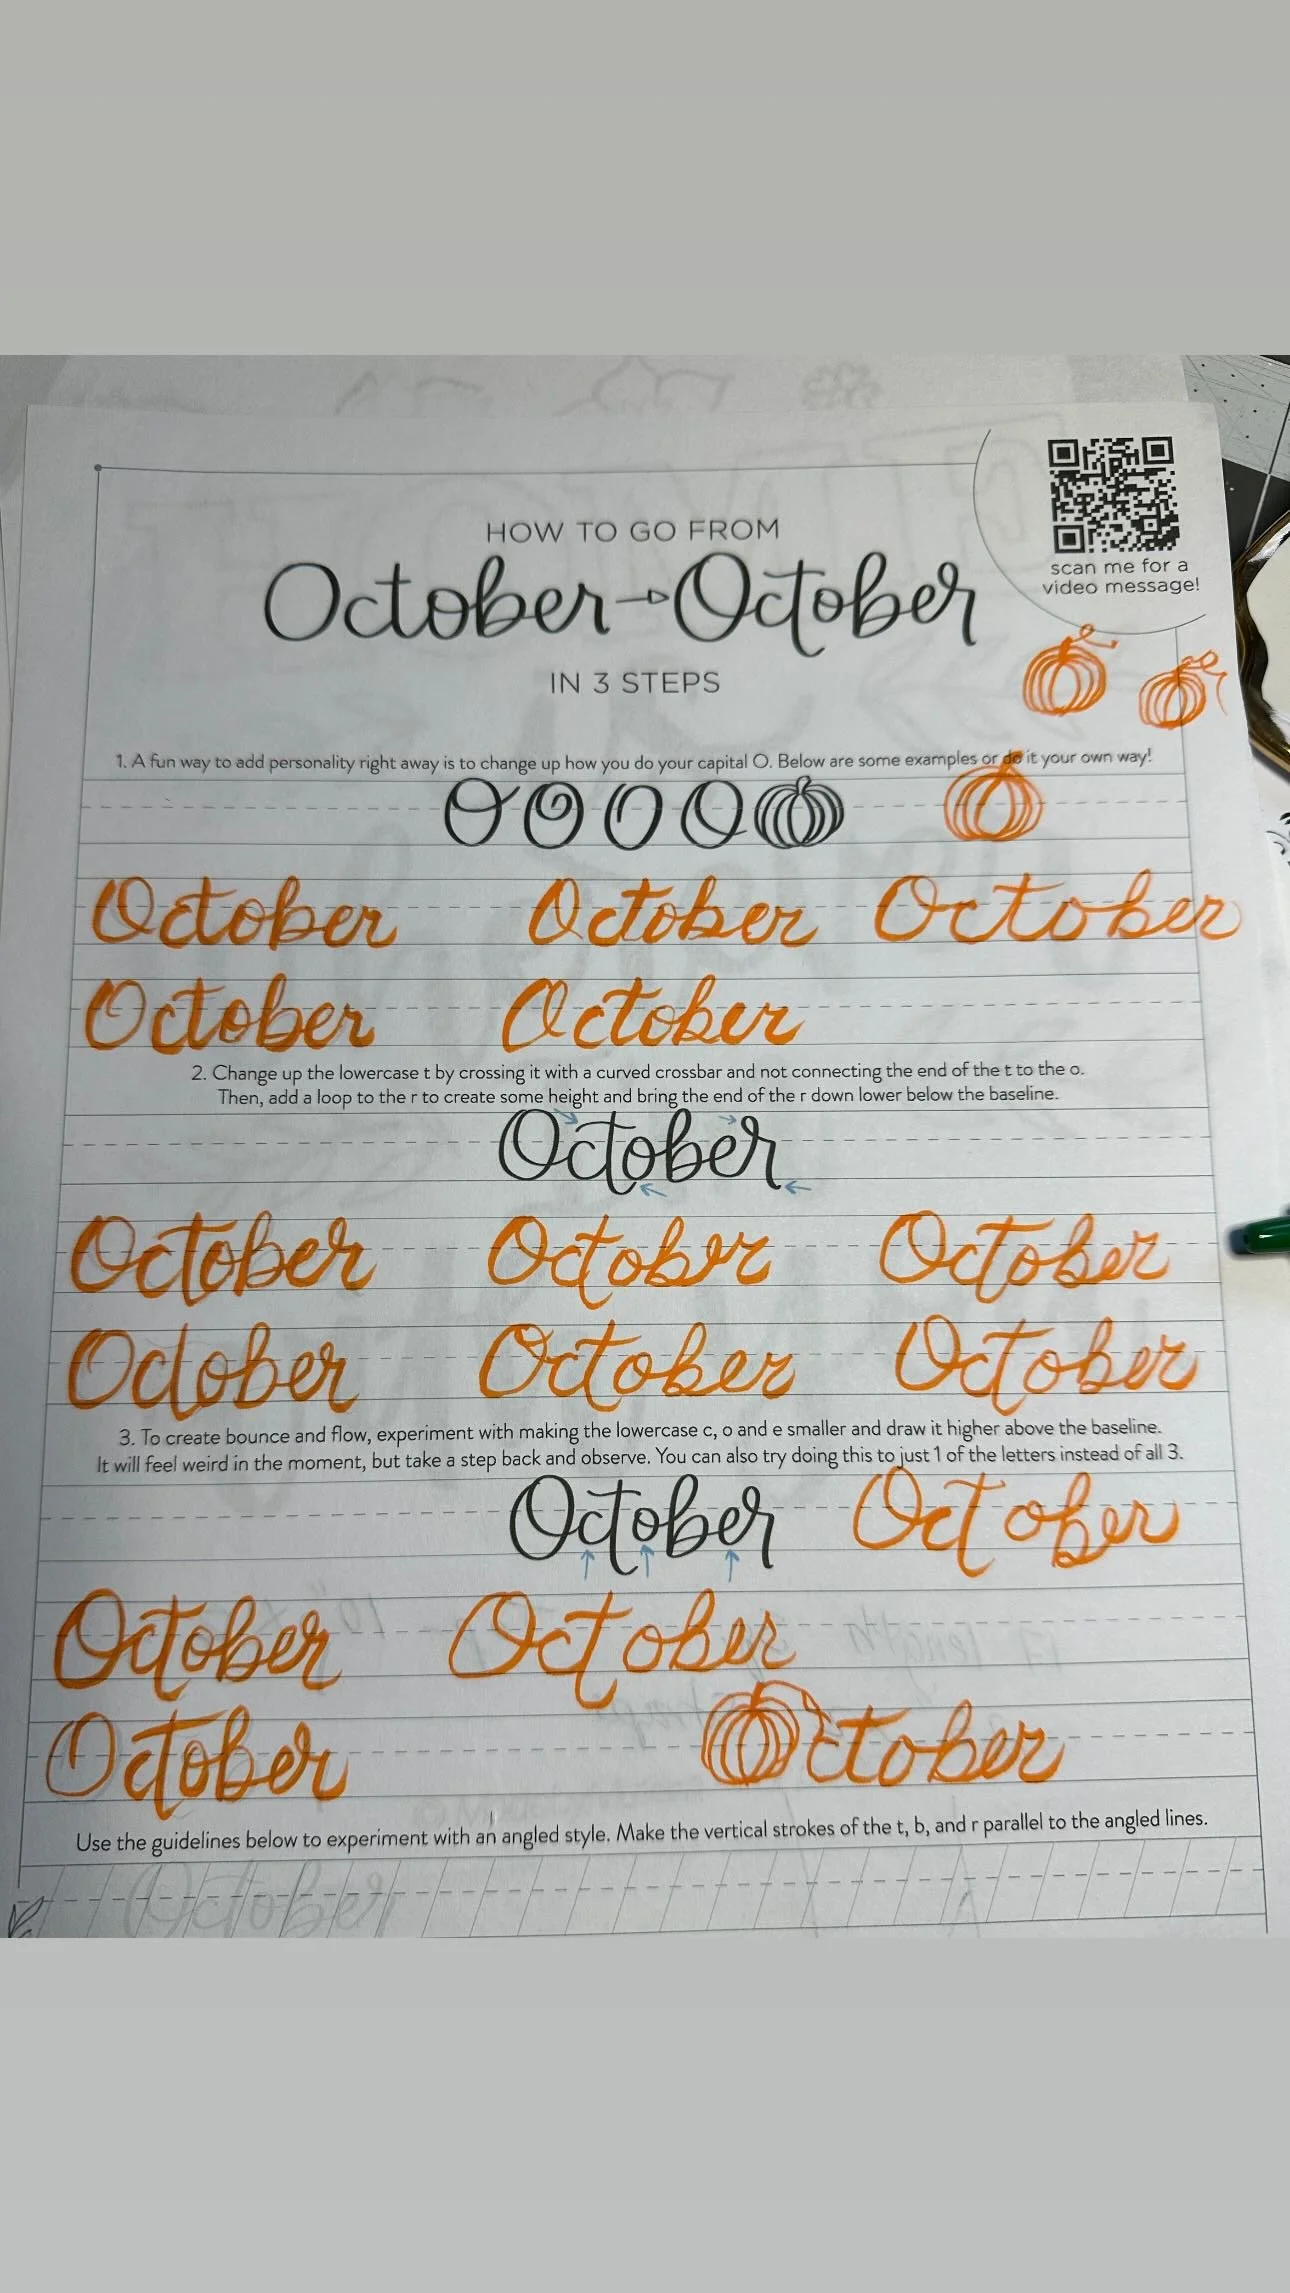 HOW TO GO FROM
October → October
IN 3 STEPS
scan me for a
video message!
1. A fun way to add personality right away is to change up how you do your capital O. Below are some examples or do it your own way!
O O O O O O
October October October
October October
2. Change up the lowercase t by crossing it with a curved crossbar and not connecting the end of the t to the o.
Then, add a loop to the r to create some height and bring the end of the r down lower below the baseline.
October
October October October
October October October
3. To create bounce and flow, experiment with making the lowercase c, o and e smaller and draw it higher above the baseline.
It will feel weird in the moment, but take a step back and observe. You can also try doing this to just 1 of the letters instead of all 3.
October October
October October
October October
Use the guidelines below to experiment with an angled style. Make the vertical strokes of the t, b, and r parallel to the angled lines.
October